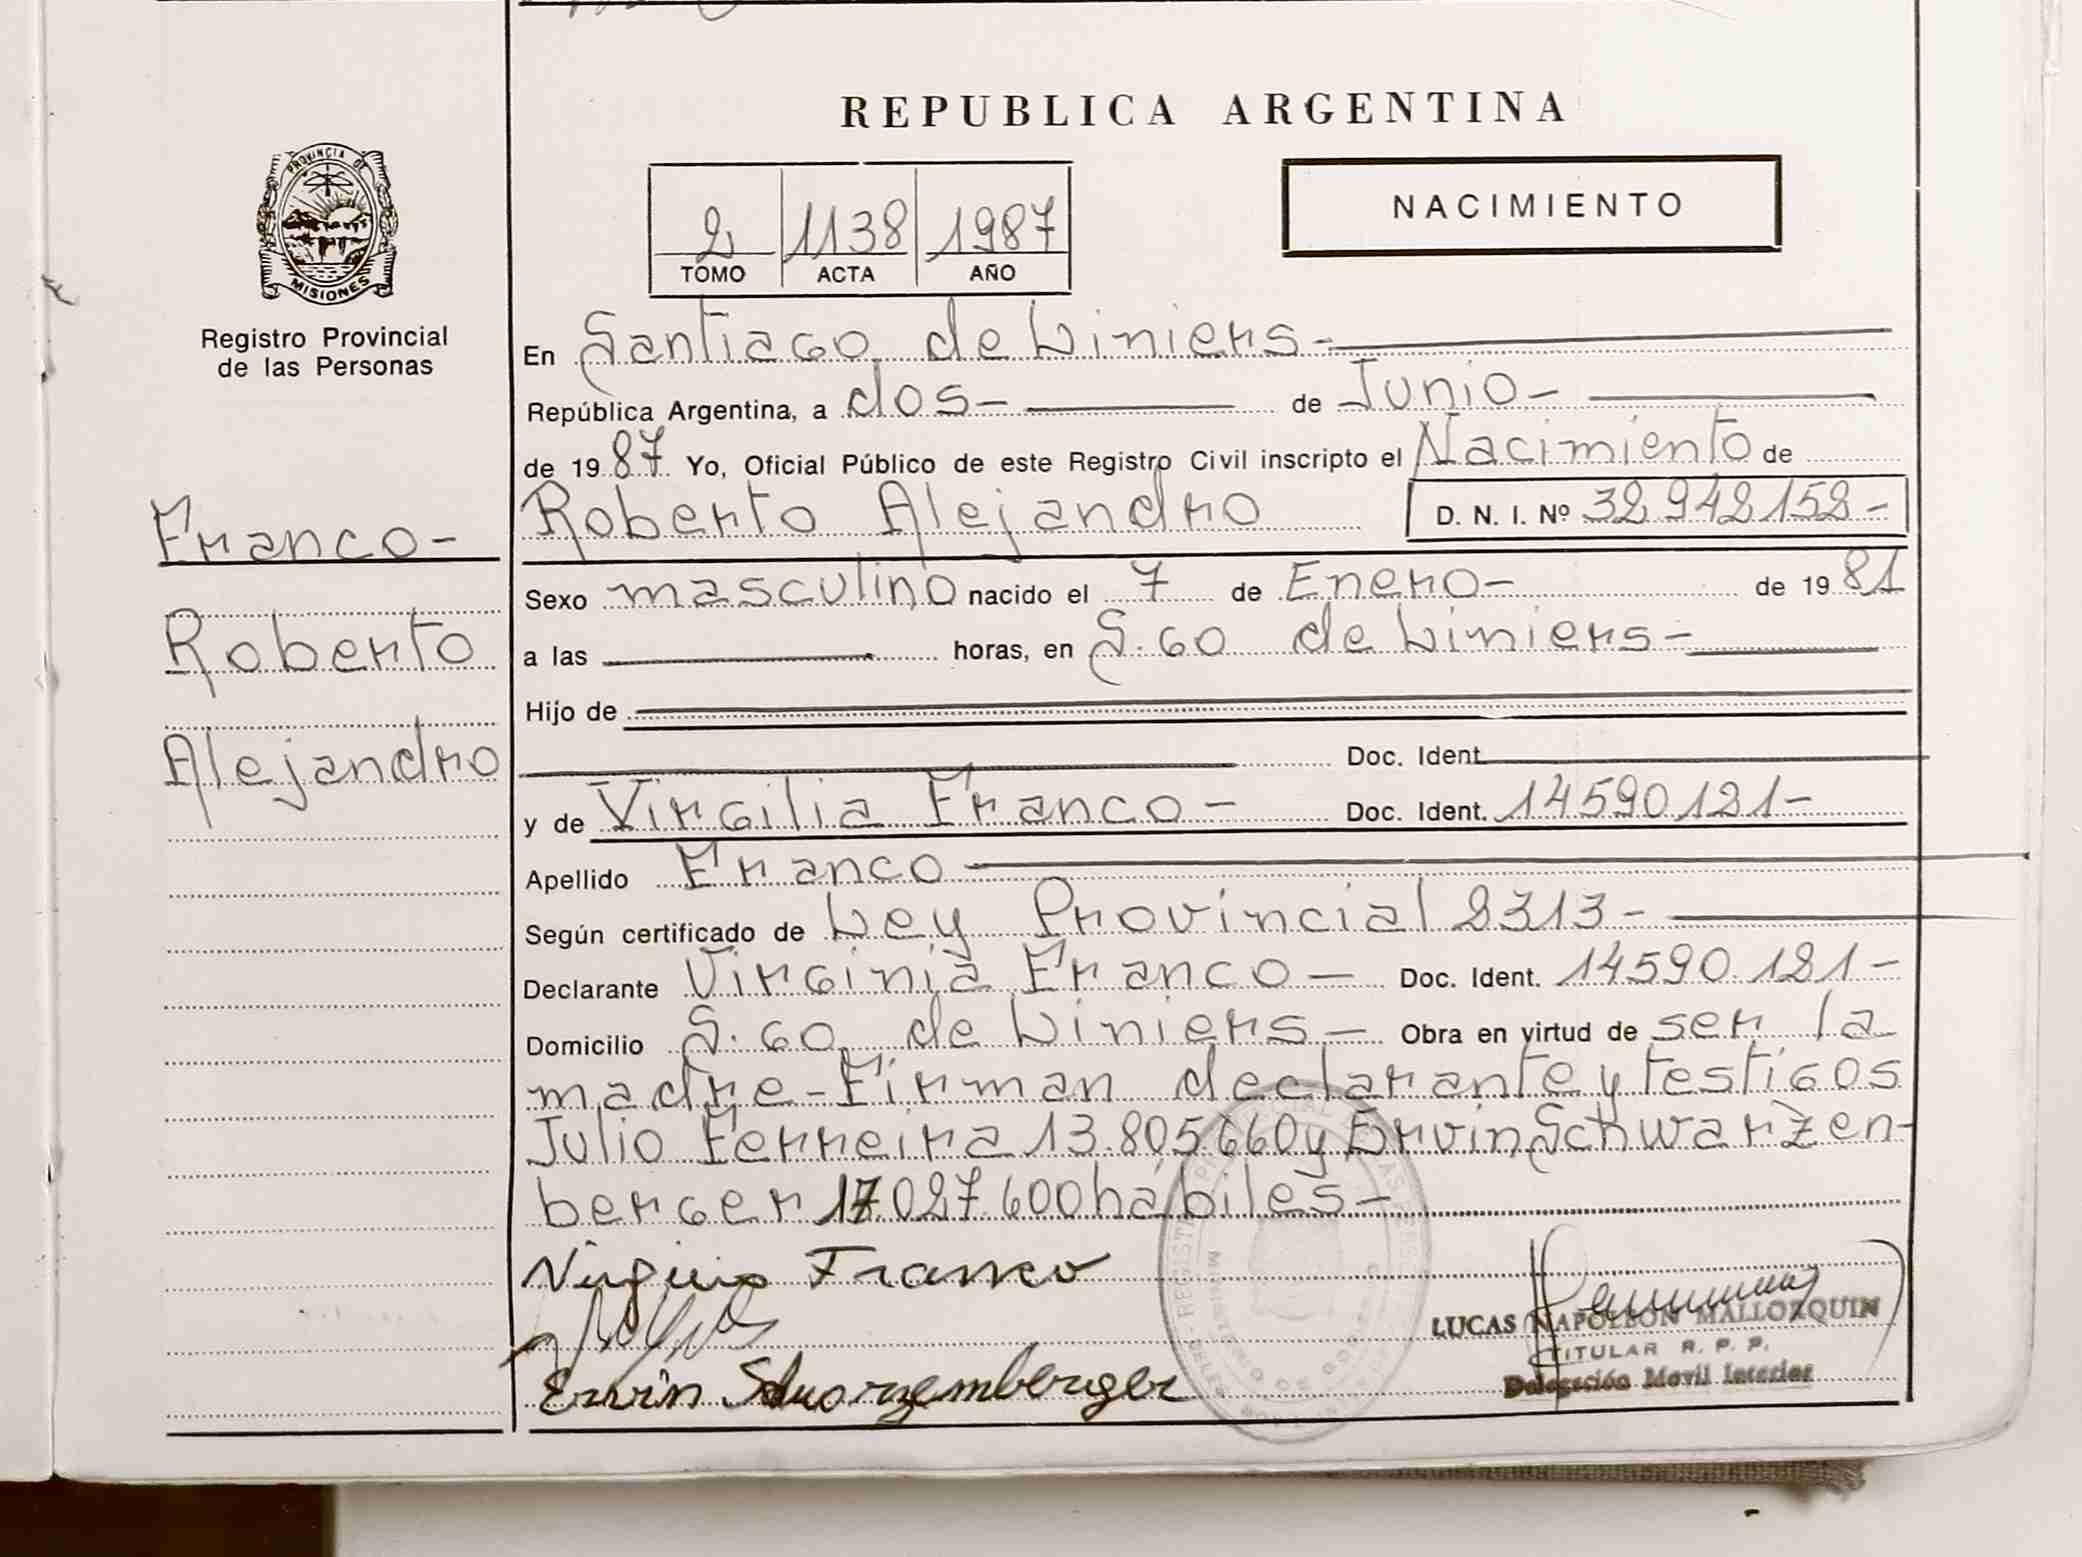 REPUBLICA ARGENTINA
NACIMIENTO
2 1138 1987
TOMO ACTA AÑO
PROVINCIA DE
MISIONES
Registro Provincial
de las Personas
Franco-
Roberto
Alejandro
En Santiago de Liniers-
República Argentina, a dos- de Junio-
de 1987 Yo, Oficial Público de este Registro Civil inscripto el Nacimiento de
Roberto Alejandro D. N. I. Nº 32 942152-
Sexo masculino nacido el 7 de Enero- de 1981
a las horas, en S.Go de Liniers-
Hijo de
Doc. Ident.
y de Virgilia Franco- Doc. Ident. 14590121-
Apellido Franco
Según certificado de Ley Provincial 2313-
Declarante Virginia Franco- Doc. Ident. 14590.121-
Domicilio S.Go de Liniers- Obra en virtud de ser la
madre-Firman declarante y testigos
Julio Ferreira 13.805.660 y Ervin Schwarzen-
berger 17.027.600 habiles-
Virginia Franco
Erwin Schwarzemberger
LUCAS NAPOLEON MALLORQUIN
TITULAR R. P. P.
Delegación Movil Interior